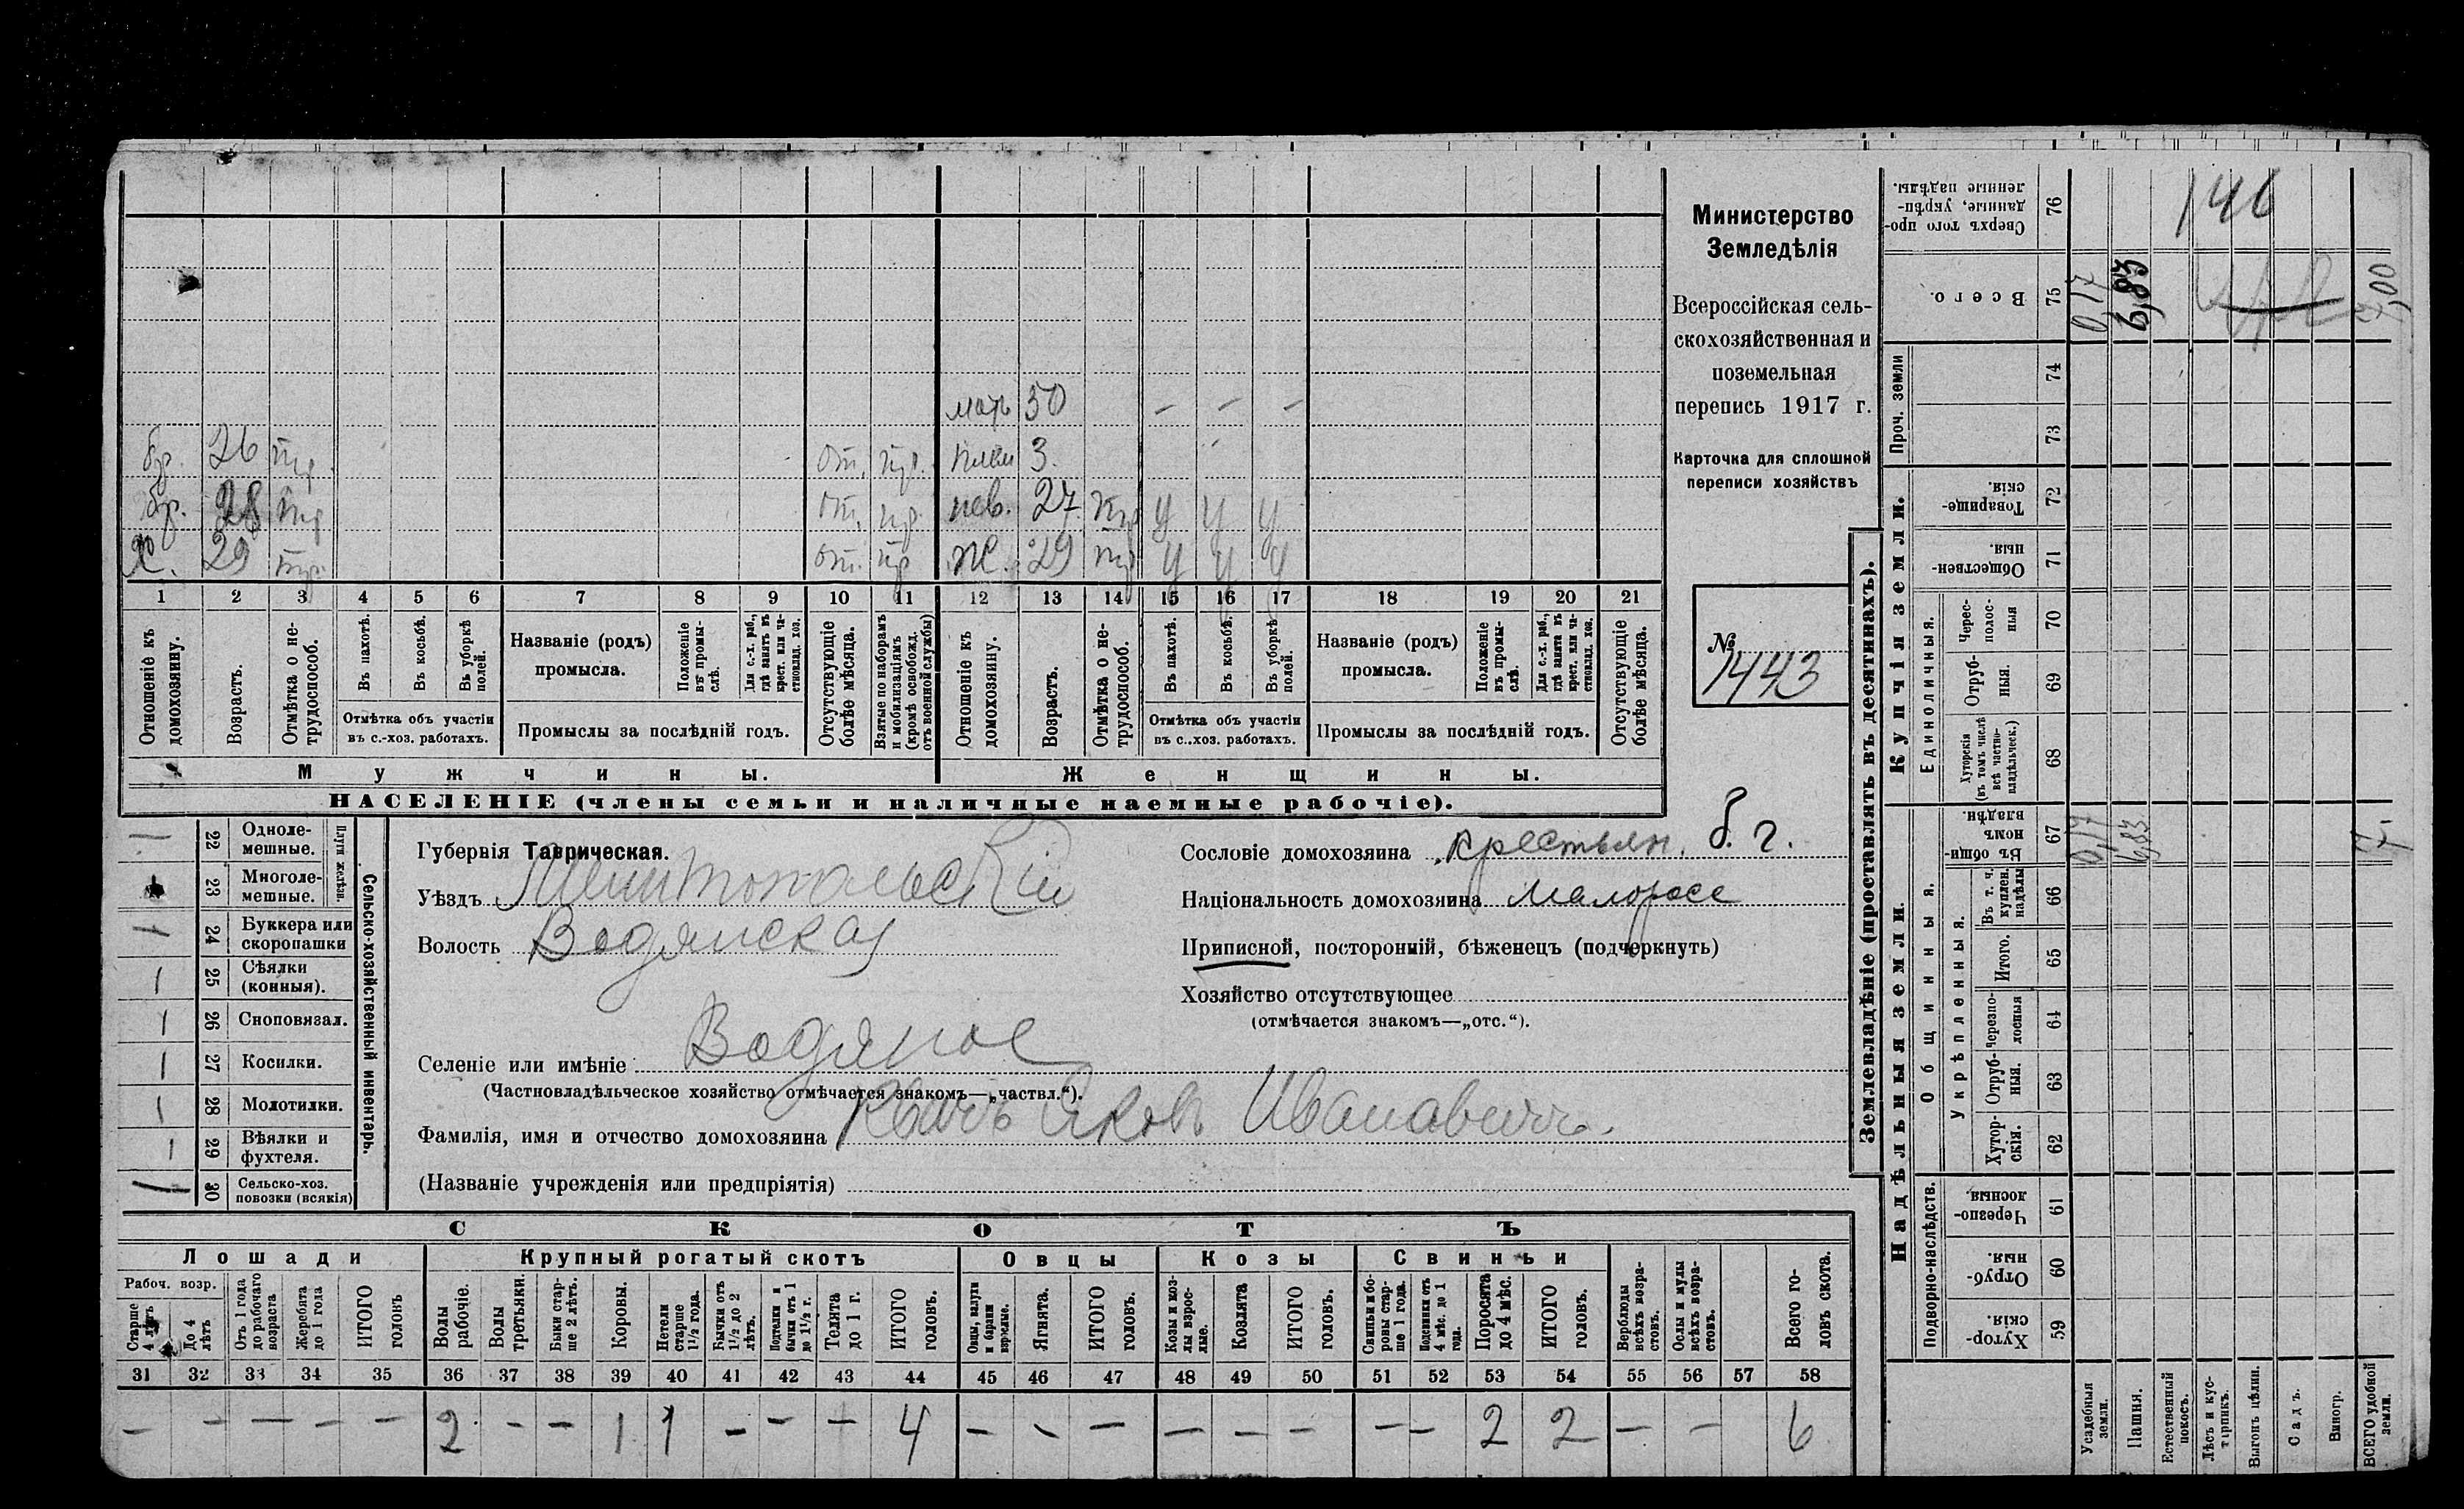 мать 50 — — —
бр. 26 тр. от. пр. плем 3.
бр. 28 тр от. пр. нев. 27 тр у у у
Х. 29 тр. от. пр Ж. 29 тр у у у
1 2 3 4 5 6 7 8 9 10 11 12 13 14 15 16 17 18 19 20 21
Отношеніе къ домохозяину.
Возрастъ.
Отмѣтка о нетрудоспособ.
Въ пахотѣ.
Въ косьбѣ.
Въ уборкѣ полей.
Отмѣтка объ участіи
въ с.-хоз. работахъ.
Названіе (родъ)
промысла.
Положеніе въ промыслѣ.
Для с.-х. раб., гдѣ занятъ въ крест. или частновлад. хоз.
Промыслы за послѣдній годъ.
Отсутствующіе болѣе мѣсяца.
Взятые по наборамъ и мобилизаціямъ (кромѣ освобожд. отъ военной службы)
Отношеніе къ домохозяину.
Возрастъ.
Отмѣтка о нетрудоспособ.
Въ пахотѣ.
Въ косьбѣ.
Въ уборкѣ полей.
Отмѣтка объ участіи
въ с.-хоз. работахъ.
Названіе (родъ)
промысла.
Положеніе въ промыслѣ.
Для с.-х. раб., гдѣ занятъ въ крест. или частновлад. хоз.
Промыслы за послѣдній годъ.
Отсутствующіе болѣе мѣсяца.
Мужчины. Женщины.
НАСЕЛЕНІЕ (члены семьи и наличные наемные рабочіе).
Министерство
Земледѣлія
Всероссійская сель-
скохозяйственная и
поземельная
перепись 1917 г.
Карточка для сплошной
переписи хозяйствъ
№
1443
Плуги желѣзн.
Сельско-хозяйственный инвентарь.
22 Одноле-
мешные.
23 Многоле-
мешные.
24 Буккера или
скоропашки
25 Сѣялки
(конныя).
26 Сноповязал.
27 Косилки.
28 Молотилки.
29 Вѣялки и
фухтеля.
30 Сельско-хоз.
повозки (всякія)
Губернія Таврическая.
Уѣздъ Мелитопольскій
Волость Водянская
Селеніе или имѣніе Водяное
(Частновладѣльческое хозяйство отмѣчается знакомъ—„частвл.“).
Фамилія, имя и отчество домохозяина Яковъ Ивановичъ.
(Названіе учрежденія или предпріятія)
Сословіе домохозяина крестьян. б. г.
Національность домохозяина малоросс
Приписной, посторонній, бѣженецъ (подчеркнуть)
Хозяйство отсутствующее
(отмѣчается знакомъ—„отс.“).
СКОТЪ
Лошади Крупный рогатый скотъ Овцы Козы Свиньи
Рабоч. возр.
Старше 4 лѣтъ
До 4 лѣтъ
Отъ 1 года до рабочаго возраста
Жеребята до 1 года
ИТОГО головъ
Волы рабочіе.
Волы третьяки.
Быки старше 2 лѣтъ.
Коровы.
Нетели старше 1½ года.
Бычки отъ 1½ до 2 лѣтъ.
Подтелки и бычки отъ 1 до 1½ г.
Телята до 1 г.
ИТОГО головъ.
Овцы, валухи и бараны взрослые.
Ягнята.
ИТОГО головъ.
Козы и козлы взрослые.
Козлята
ИТОГО головъ.
Свиньи и боровы старше 1 года.
Подсвинки отъ 4 мѣс. до 1 года.
Поросята до 4 мѣс.
ИТОГО головъ.
Верблюды всѣхъ возрастовъ.
Ослы и мулы всѣхъ возрастовъ.
Всего головъ скота.
31 32 33 34 35 36 37 38 39 40 41 42 43 44 45 46 47 48 49 50 51 52 53 54 55 56 57 58
— — — — — 2 — — 1 1 — — — 4 — — — — — — — — 2 2 — — 6
Землевладѣніе (проставлять въ десятинахъ).
Купчія земли.
Надѣльныя земли.
Проч. земли
Единоличныя.
Общинныя.
Укрѣпленныя.
Подворно-наслѣдств.
Сверхъ того проданные, укрѣпленные надѣлы. 76
Всего. 75 0,17 6,83 7,00
146
74
73
Товарищескія. 72
Общественныя. 71
Черес-полосныя 70
Отрубныя. 69
Хуторскія (въ томъ числѣ всѣ частновладѣльческ.) 68
Въ общинномъ владѣн. 67 0,17 6,83 7,
Въ т. ч. куплен. надѣлы 66
Итого. 65
Черезполосныя 64
Отрубныя. 63
Хуторскія. 62
Черезполосныя. 61
Отрубныя. 60
Хуторскія. 59
Усадебныя земли.
Пашня.
Естественный покосъ.
Лѣсъ и кустарникъ.
Выгонъ цѣлин.
Садъ.
Виногр.
ВСЕГО удобной земли.